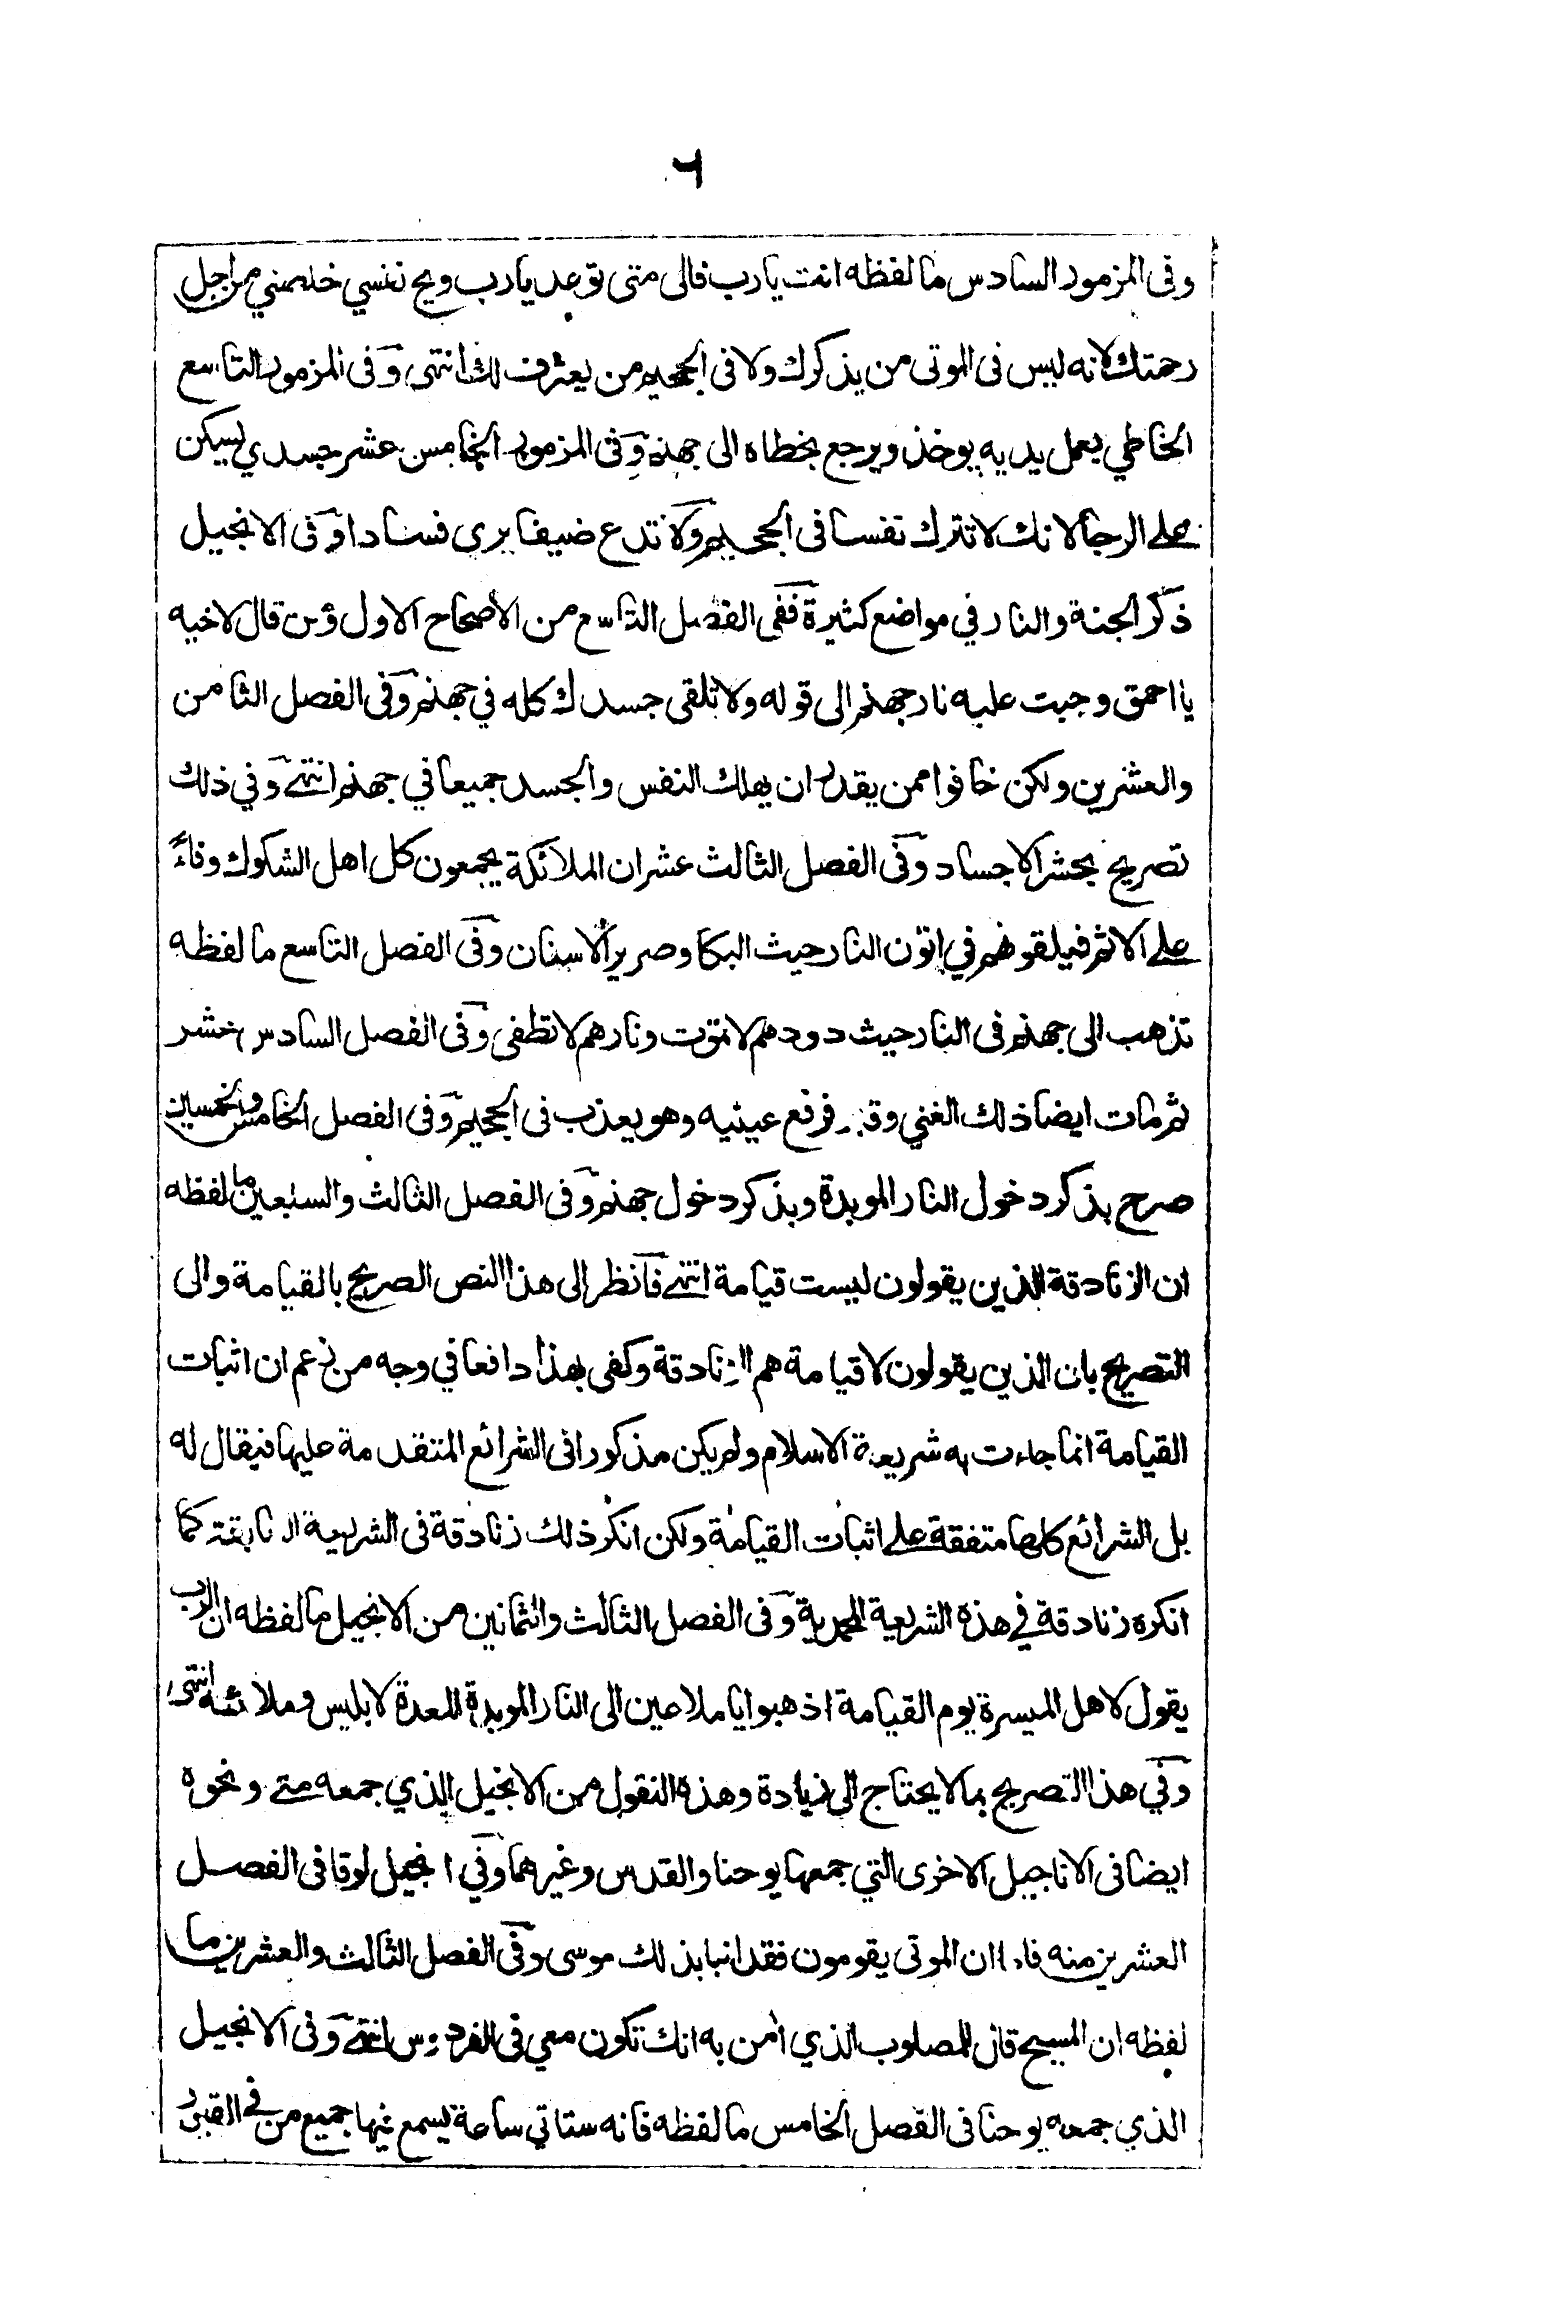 ٦
وفى المزمور السادس ما لفظه انت يارب فالى متى توعد يارب ويح نفسي خلصني من اجل
رحمتك لانه ليس فى الموتى من يذكرك ولا فى الجحيم من يعترف لك انتهى وفى المزمور التاسع
الخاطي يعمل يديه يوخذ ويرجع بخطاه الى جهنم وفى المزمور الخامس عشر جسدي ليسكن
على الرجا لانك لا تترك نفسا فى الجحيم ولا تدع ضيفا يرى فسادا وفى الانجيل
ذكر الجنة والنار في مواضع كثيرة ففى الفصل التاسع من الاصحاح الاول ومن قال لاخيه
يا احمق وجبت عليه نار جهنم الى قوله ولا تلقى جسدك كله في جهنم وفى الفصل الثامن
والعشرين ولكن خافوا ممن يقدر ان يهلك النفس والجسد جميعا في جهنم انتهى وفي ذلك
تصريح بحشر الاجساد وفى الفصل الثالث عشر ان الملائكة يجمعون كل اهل الشكوك وفاء
على الاثم فيلقونهم في اتون النار حيث البكا وصرير الاسنان وفى الفصل التاسع ما لفظه
تذهب الى جهنم فى النار حيث دودهم لا تموت ونارهم لا تطفى وفى الفصل السادس عشر
ثم مات ايضا ذلك الغني وقبر فرفع عينيه وهو يعذب فى الجحيم وفى الفصل الخامس والخمسين
صرح بذكر دخول النار الموبدة وبذكر دخول جهنم وفى الفصل الثالث والسبعين ما لفظه
ان الزنادقة الذين يقولون ليست قيامة انتهى فانظر الى هذا النص الصريح بالقيامة والى
التصريح بان الذين يقولون لا قيامة هم الزنادقة وكفى بهذا دافعا في وجه من زعم ان اثبات
القيامة انما جاءت به شريعة الاسلام ولم يكن مذكورا فى الشرائع المتقدمة عليها فيقال له
بل الشرائع كلها متفقة على اثبات القيامة ولكن انكر ذلك زنادقة فى الشريعة السابقة كما
انكره زنادقة في هذه الشريعة المحمدية وفى الفصل الثالث والثمانين من الانجيل ما لفظه ان الرب
يقول لاهل الميسرة يوم القيامة اذهبوا يا ملاعين الى النار الموبدة المعدة لابليس وملائكته انتهى
وفي هذا التصريح بما لا يحتاج الى زيادة وهذه النقول من الانجيل الذي جمعه متى ونحوه
ايضا فى الاناجيل الاخرى التي جمعها يوحنا والقدس وغيرهما وفي انجيل لوقا فى الفصل
العشرين منه فاما ان الموتى يقومون فقد انبا بذلك موسى وفى الفصل الثالث والعشرين ما
لفظه ان المسيح قال للمصلوب الذي امن به انك تكون معي فى الفردوس انتهى وفى الانجيل
الذي جمعه يوحنا فى الفصل الخامس ما لفظه فانه ستاتي ساعة يسمع فيها جميع من في القبور